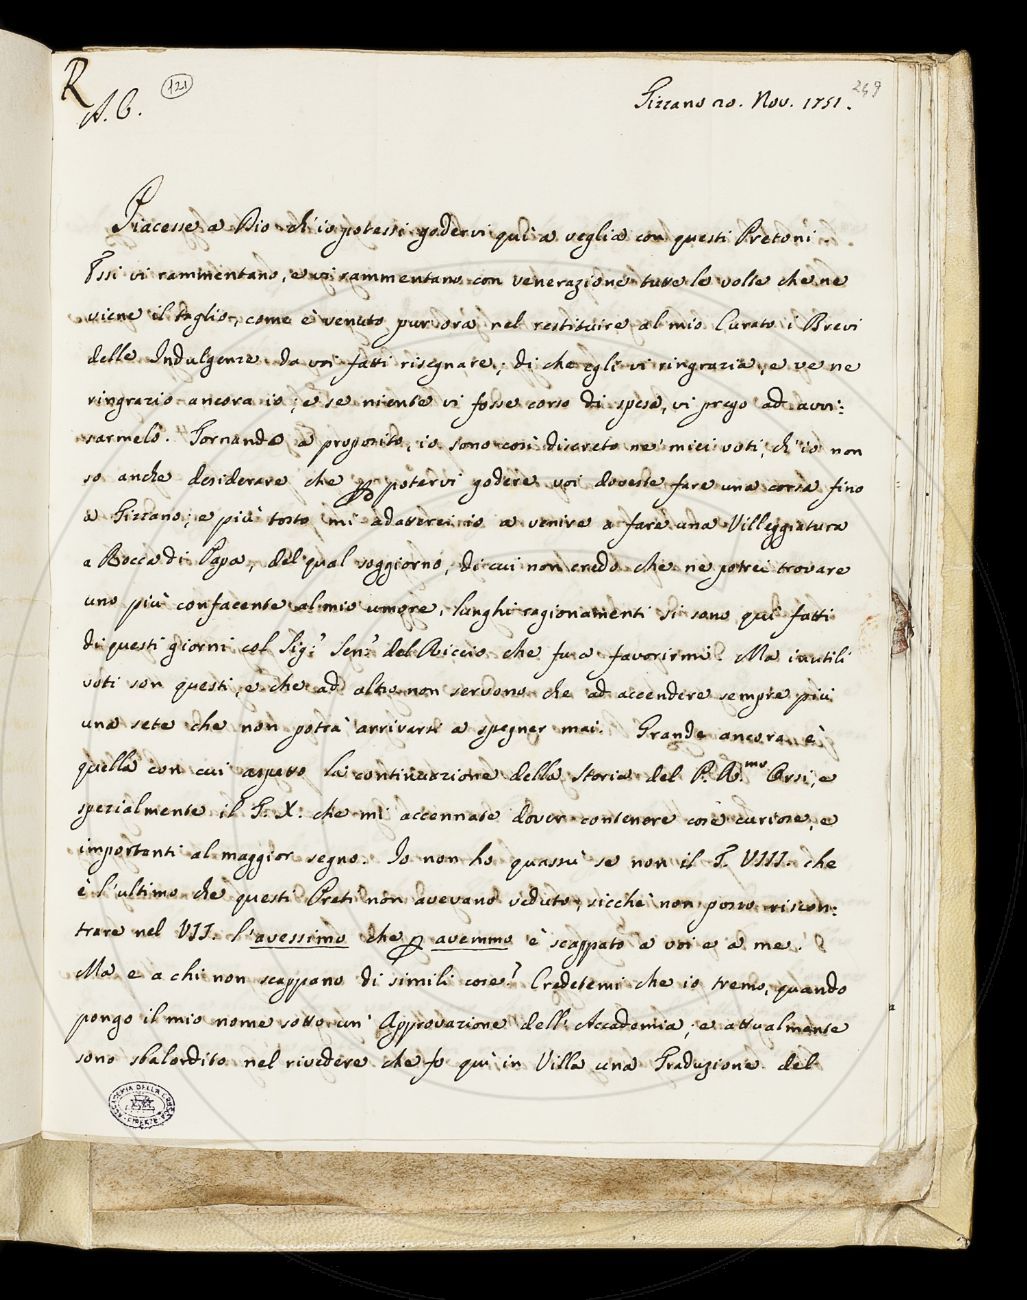 R
A. C.
121
249
Gizzano 20. Nov. 1751.
Piacesse a Dio ch'io potessi godervi qui a veglia con questi Pretoni.
Essi vi rammentano, e vi rammentano con venerazione tutte le volte che ne
viene il taglio, come è venuto pur ora nel restituire al mio Curato i Brevi
delle Indulgenze da voi fatti risegnare, di che egli vi ringrazia, e ve ne
ringrazio ancora io; e se niente vi fosse corso di spesa, vi prego ad avvi:
sarmelo. Tornando a proposito, io sono così discreto ne' miei voti, ch'io non
so anche desiderare che p potervi godere voi doveste fare una corsa fino
a Gizzano; e più tosto mi adatterei io a venire a fare una Villeggiatura
a Rocca di Papa, del qual soggiorno, di cui non credo che ne potrei trovare
uno più confacente al mio umore, lunghi ragionamenti si sono qui fatti
di questi giorni col Sig.r Sen.r del Riccio che fu a favorirmi. Ma inutili
voti son questi, e che ad altro non servono che ad accendere sempre più
una sete che non potrà arrivarsi a spegner mai. Grande ancora è
quella con cui aspetto la continuazione della Storia del P. R.mo Orsi, e
spezialmente il T. X. che mi accennate dover contenere cose curiose, e
importanti al maggior segno. Io non ho quassù se non il T. VIII. che
è l'ultimo che questi Preti non avevano veduto, sicchè non posso riscon:
trare nel VII. l'avessimo che p avemmo è scappato a voi e a me.
Ma e a chi non scappano di simili cose? Credetemi che io tremo, quando
pongo il mio nome sotto un' Approvazione dell' Accademia; e attualmente
sono sbalordito nel rivedere che fo quì in Villa una Traduzione del
ACCADEMIA DELLA CRUSCA FIRENZE